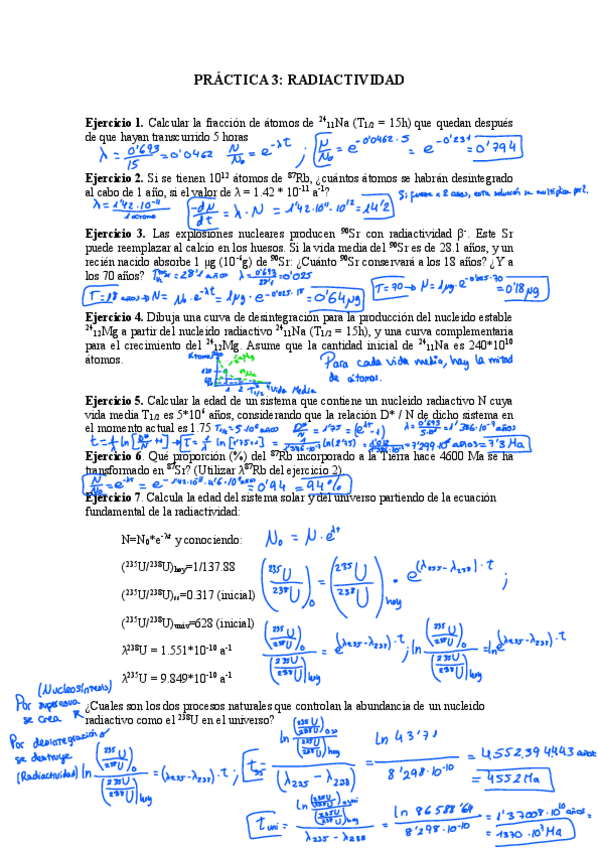 PRÁCTICA 3: RADIACTIVIDAD
Ejercicio 1. Calcular la fracción de átomos de ²⁴₁₁Na (T1/2 = 15h) que quedan después
de que hayan transcurrido 5 horas
λ = 0'693/15 = 0'0462   N/N₀ = e^-λt ; N/N₀ = e^-0'0462·5 = e^-0'231 = 0'794
Ejercicio 2. Si se tienen 10¹² átomos de ⁸⁷Rb, ¿cuántos átomos se habrán desintegrado
al cabo de 1 año, si el valor de λ = 1.42 * 10⁻¹¹ a⁻¹?
Si fuese a 2 años, esta solución se multiplica por 2.
-dN/dt = λ · N = 1'42·10⁻¹¹ · 10¹² = 14'2
Ejercicio 3. Las explosiones nucleares producen ⁹⁰Sr con radiactividad β⁻. Este Sr
puede reemplazar al calcio en los huesos. Si la vida media del ⁹⁰Sr es de 28.1 años, y un
recién nacido absorbe 1 µg (10⁻⁶g) de ⁹⁰Sr: ¿Cuánto ⁹⁰Sr conservará a los 18 años? ¿Y a
los 70 años?   = 28'1 años   λ = 0'693/28'1 = 0'025
T=18 años → N = N₀·e^-λt = 1µg·e^-0'025·18 = 0'64µg   T=70 → N = 1µg·e^-0'025·70 = 0'18µg
Ejercicio 4. Dibuja una curva de desintegración para la producción del nucleido estable
²⁴₁₂Mg a partir del nucleido radiactivo ²⁴₁₁Na (T1/2 = 15h), y una curva complementaria
para el crecimiento del ²⁴₁₂Mg. Asume que la cantidad inicial de ²⁴₁₁Na es 240*10¹⁰
átomos.
Para cada vida media, hay la mitad
de átomos.
Vida Media
Ejercicio 5. Calcular la edad de un sistema que contiene un nucleido radiactivo N cuya
vida media T1/2 es 5*10⁶ años, considerando que la relación D* / N de dicho sistema en
el momento actual es 1.75   D*/N = 1'75 = (e^λt -1)
= 7'3 Ma
Ejercicio 6. Qué proporción (%) del ⁸⁷Rb incorporado a la Tierra hace 4600 Ma se ha
transformado en ⁸⁷Sr? (Utilizar λ⁸⁷Rb del ejercicio 2)
= 0'94 = 94%
Ejercicio 7. Calcula la edad del sistema solar y del universo partiendo de la ecuación
fundamental de la radiactividad:
N=N₀*e^-λt y conociendo:   N₀ = N·e^λt
(²³⁵U/²³⁸U)hoy=1/137.88   (²³⁵U/²³⁸U)₀ = (²³⁵U/²³⁸U)hoy · e^(λ235-λ238)·t ;
(²³⁵U/²³⁸U)ss=0.317 (inicial)
(²³⁵U/²³⁸U)univ=628 (inicial)   (²³⁵U/²³⁸U)₀/(²³⁵U/²³⁸U)hoy = e^(λ235-λ238)·t ; ln (²³⁵U/²³⁸U)₀/(²³⁵U/²³⁸U)hoy = ln e^(λ235-λ238)·t
λ²³⁸U = 1.551*10⁻¹⁰ a⁻¹
λ²³⁵U = 9.849*10⁻¹⁰ a⁻¹
(Nucleosíntesis)
Por supernova
se crea
¿Cuales son los dos procesos naturales que controlan la abundancia de un nucleido
radiactivo como el ²³⁸U en el universo?
Por desintegración
se destruye
(Radiactividad)
ln (²³⁵U/²³⁸U)₀/(²³⁵U/²³⁸U)hoy = (λ235-λ238)·t ; tss = ln (²³⁵U/²³⁸U)₀/(²³⁵U/²³⁸U)hoy / (λ235 - λ238) = ln 43'71 / 8'298·10⁻¹⁰ = 4552394443 años = 4552 Ma
t uni = ln (²³⁵U/²³⁸U)uni/(²³⁵U/²³⁸U)hoy / λ235-λ238 = ln 86588'64 / 8'298·10⁻¹⁰ = 1'37008·10¹⁰ años = = 1370·10³ Ma